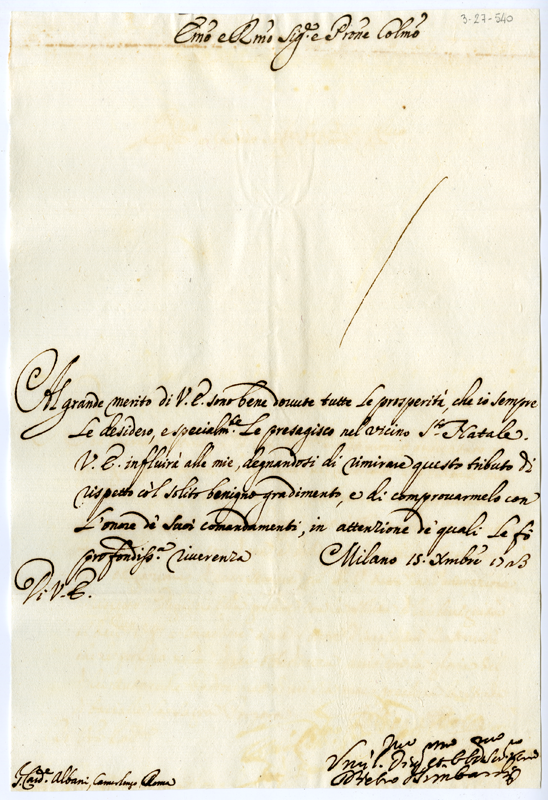 3-27-540
Emo e Rmo Sig.e e Prone Colmo
Al grande merito di V.E. sono bene dovute tutte le prosperità, che io sempre
Le desidero, e specialm.te Le presagisco nel vicino S.to Natale.
V. E. influirà alle mie, degnandosi di rimirare questo tributo di
rispetto co'l solito benigno gradimento, e di comprovarmelo con
L'onore de' Suoi comandamenti, in attenzione de' quali Le fò
profondiss.a riverenza Milano 15. Xmbre 17
Di V. E.
S. Card.e Albani, Camerlengo Roma
Umil. 
Pietro